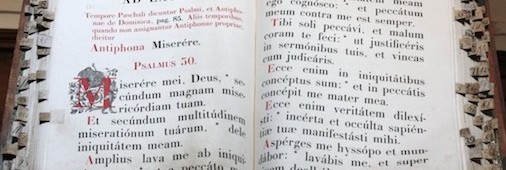 Tempore Paschali dicuntur Psalmi, et Antipho-
nae de Dominica, pag. 85. Aliis temporibus,
quando non assignantur Antiphonae propriae,
dicitur
Antiphona Miserére.
PSALMUS 50.
Miserére mei, Deus, * se-
cúndum magnam mise-
ricórdiam tuam.
Et secúndum multitúdinem
miseratiónum tuárum, * dele
iniquitátem meam.
Amplius lava me ab iniqui-
ego cognósco: * et peccátum
meum contra me est semper.
Tibi soli peccávi, et malum
coram te feci: * ut justificéris
in sermónibus tuis, et vincas
cum judicáris.
Ecce enim in iniquitátibus
concéptus sum: * et in peccátis
concépit me mater mea.
Ecce enim veritátem dilexí-
sti: * incérta et occúlta sapién-
tiae tuae manifestásti mihi.
Aspérges me hyssópo et mun-
dábor: * lavábis me, et super